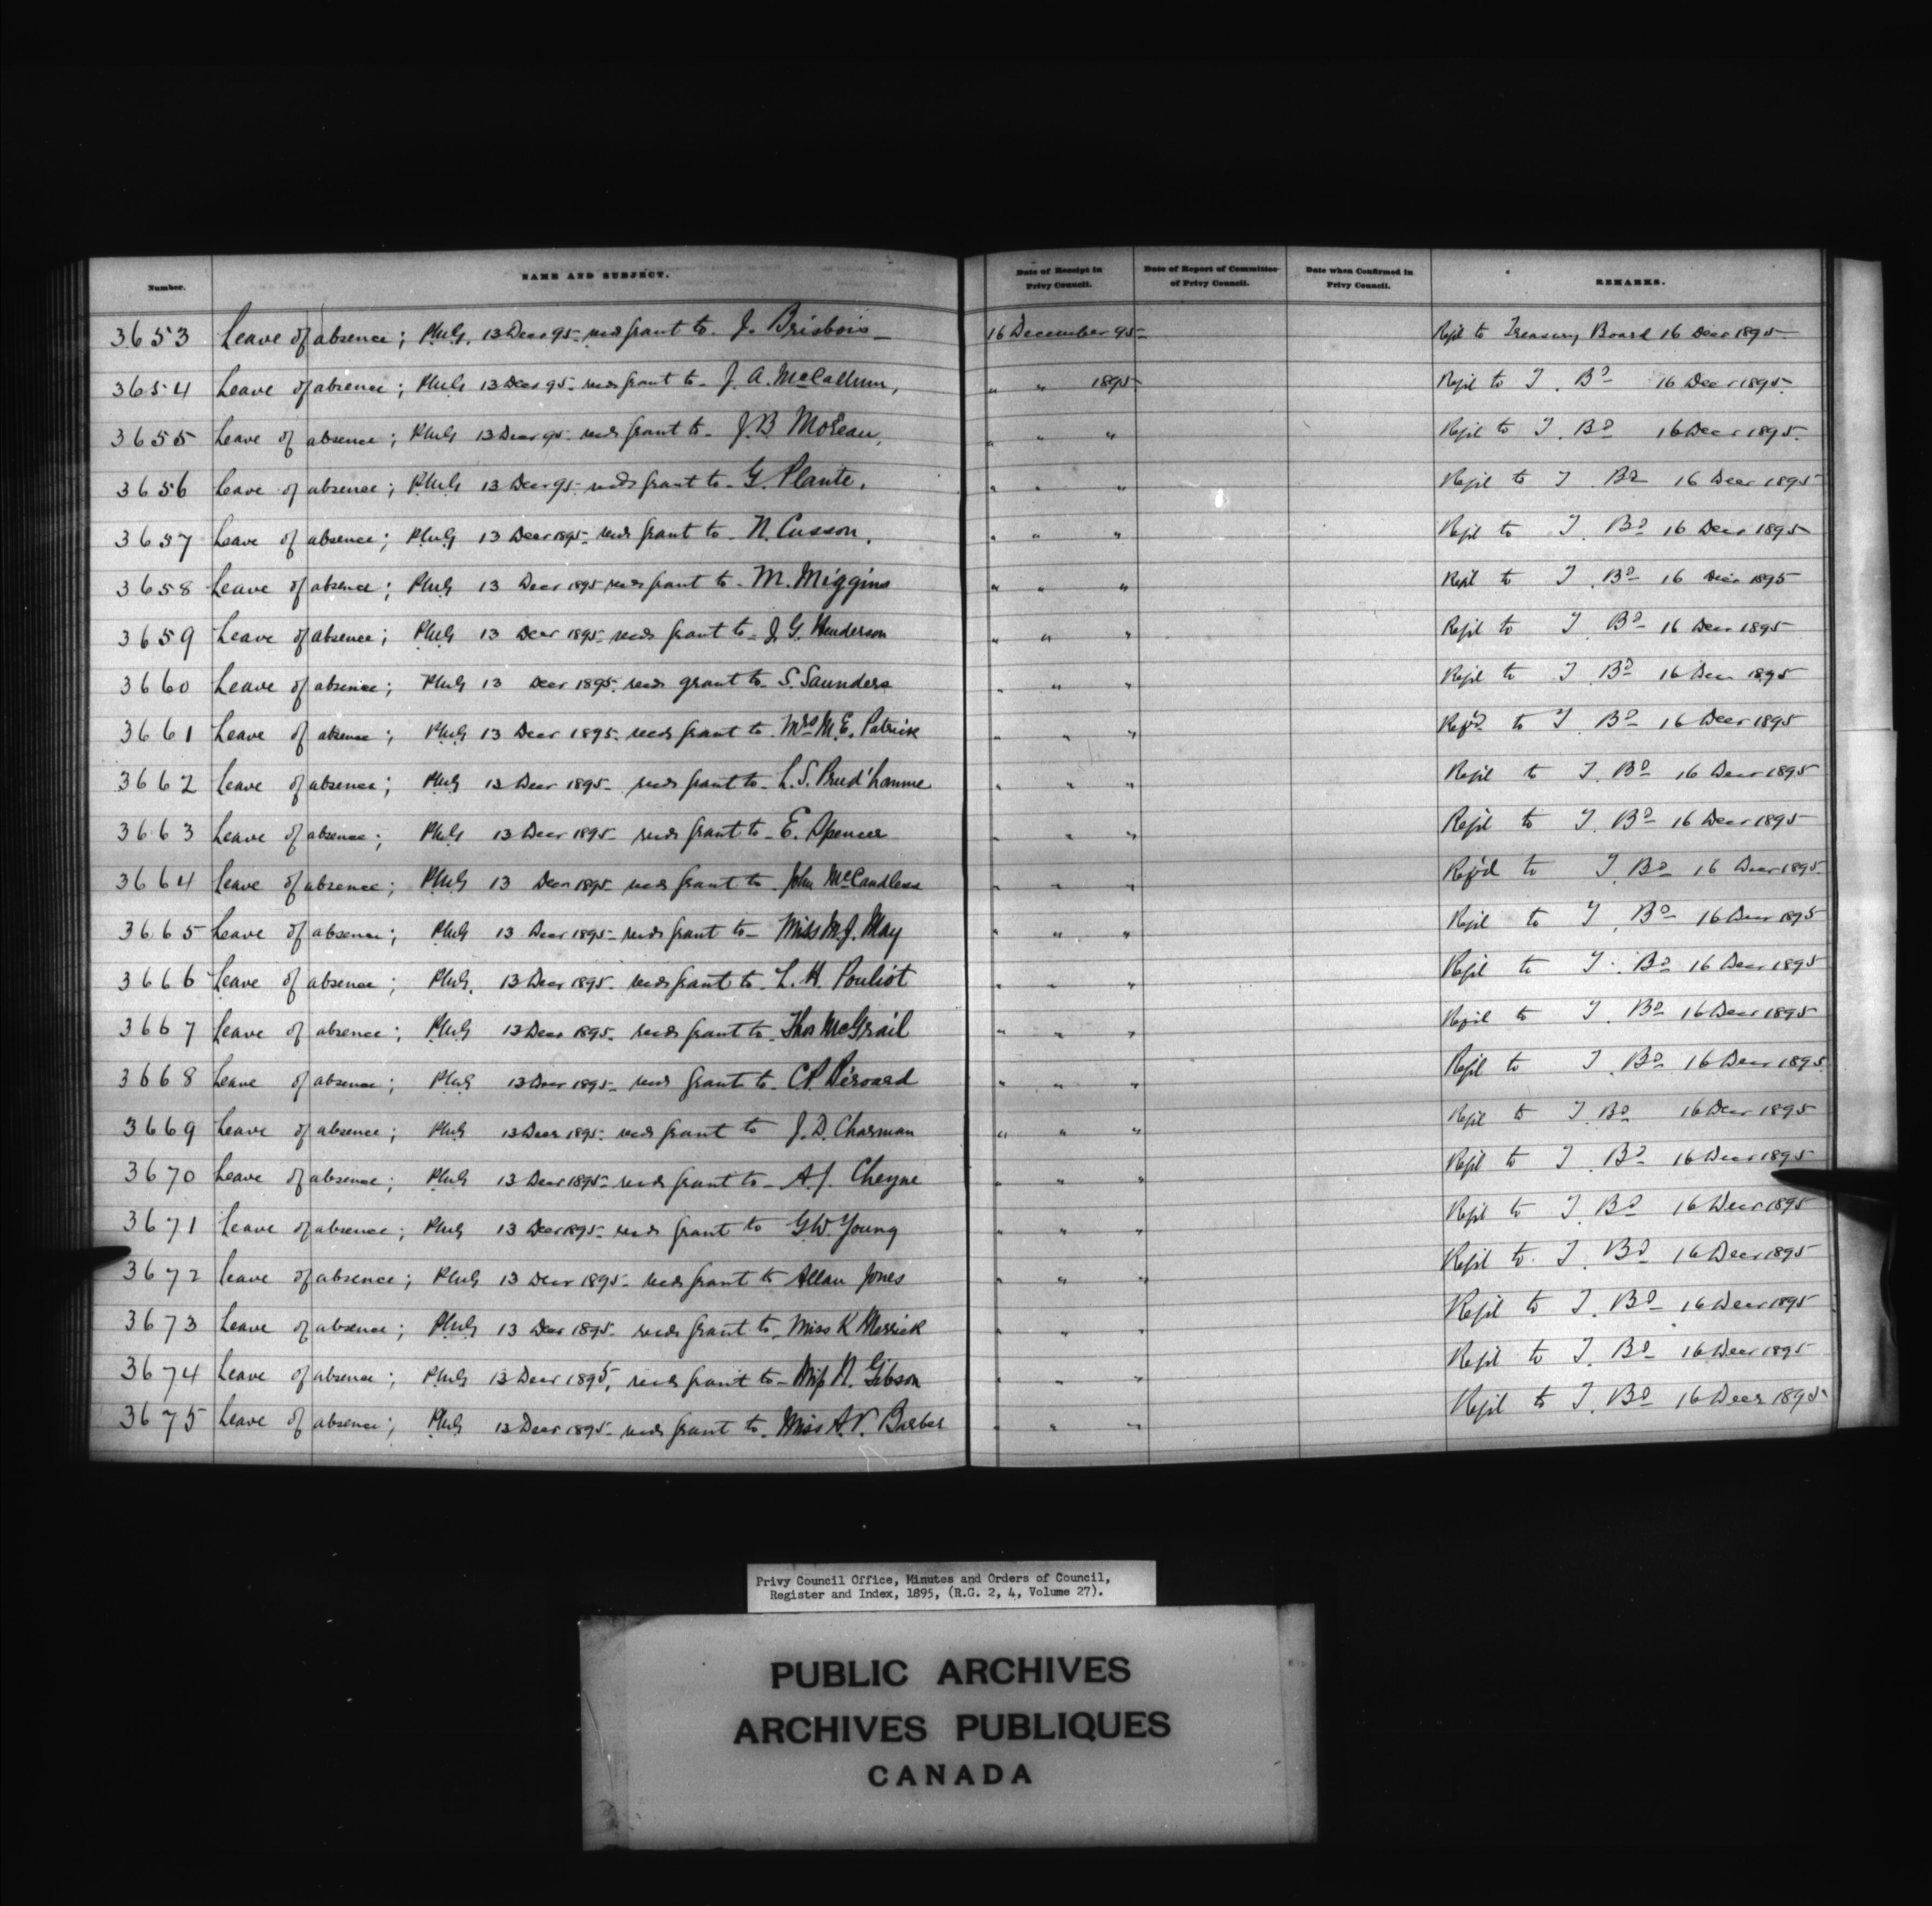 Number. NAME AND SUBJECT. Date of Receipt in Privy Council. Date of Report of Committee of Privy Council. Date when Confirmed in Privy Council. REMARKS.
3653 Leave of absence; PMG. 13 Decr 95 - recds grant to - J. Brisbois - 16 December 95 - Refd to Treasury Board 16 Decr 1895
3654 Leave of absence; PMG 13 Decr 95 - recds grant to - J. A. McCallum, " " 1895 Refd to T. Bd 16 Decr 1895.
3655 Leave of absence; PMG 13 Decr 95 - recds grant to - J. B Moreau, " " " Refd to T. Bd 16 Decr 1895.
3656 Leave of absence; PMG 13 Decr 95 - recds grant to - G. Plante, " " " Refd to T. Bd 16 Decr 1895
3657 Leave of absence; PMG 13 Decr 1895 - recds grant to - N. Cusson, " " " Refd to T. Bd 16 Decr 1895
3658 Leave of absence; PMG 13 Decr 1895 recds grant to - M. Miggins " " " Refd to T. Bd 16 Decr 1895
3659 Leave of absence; PMG 13 Decr 1895 - recds grant to - J. G. Henderson " " " Refd to T. Bd - 16 Decr 1895
3660 Leave of absence; PMG 13 Decr 1895. recds grant to - S. Saunders " " " Refd to T. Bd 16 Decr 1895
3661 Leave of absence; PMG 13 Decr 1895 - recds grant to - Mrs M. E. Patrick " " " Ref'd to T. Bd 16 Decr 1895
3662 Leave of absence; PMG 13 Decr 1895 - recds grant to - L. S. Prud'homme " " " Refd to T. Bd 16 Decr 1895
3663 Leave of absence; PMG 13 Decr 1895 - recds grant to - E. Spencer " " " Refd to T. Bd 16 Decr 1895
3664 Leave of absence; PMG 13 Decr 1895 recds grant to - John McCandless " " " Ref'd to T. Bd 16 Decr 1895
3665 Leave of absence; PMG 13 Decr 1895 - recds grant to - Miss M. J. May " " " Refd to T. Bd 16 Decr 1895
3666 Leave of absence; PMG. 13 Decr 1895 - recds grant to - L. H. Pouliot " " " Refd to T. Bd 16 Decr 1895
3667 Leave of absence; PMG 13 Decr 1895 - recds grant to - Thos McGrail " " " Refd to T. Bd 16 Decr 1895
3668 Leave of absence; PMG 13 Decr 1895 - recds grant to - " " " Refd to T. Bd 16 Decr 1895
3669 Leave of absence; PMG 13 Decr 1895 - recds grant to J. D. Charman " " " Refd to T. Bd 16 Decr 1895
3670 Leave of absence; PMG 13 Decr 1895 - recds grant to - A. J. Cheyne " " " Refd to T. Bd 16 Decr 1895
3671 Leave of absence; PMG 13 Decr 1895 - recds grant to G. W. Young " " " Refd to T. Bd 16 Decr 1895
3672 Leave of absence; PMG 13 Decr 1895 - recds grant to Allan Jones " " " Refd to T. Bd 16 Decr 1895
3673 Leave of absence; PMG 13 Decr 1895 - recds grant to. Miss K Merrick " " " Refd to T. Bd 16 Decr 1895
3674 Leave of absence; PMG 13 Decr 1895, recds grant to - Miss N. Gibson " " " Refd to T. Bd 16 Decr 1895
3675 Leave of absence; PMG 13 Decr 1895 - recds grant to - Miss A. V. Barber " " " Refd to T. Bd 16 Decr 1895
Privy Council Office, Minutes and Orders of Council,
Register and Index, 1895, (R.G. 2, 4, Volume 27).
PUBLIC ARCHIVES
ARCHIVES PUBLIQUES
CANADA